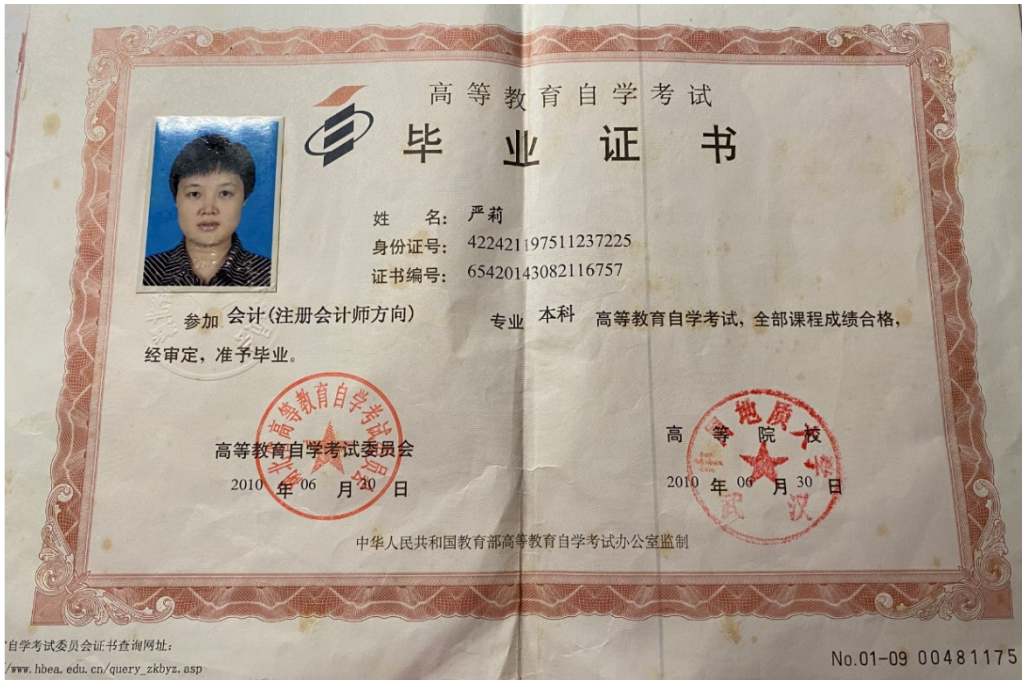 高等教育自学考试
毕业证书
姓 名： 严莉
身份证号： 422421197511237225
证书编号： 65420143082116757
参加 会计(注册会计师方向) 专业 本科 高等教育自学考试，全部课程成绩合格，
经审定，准予毕业。
湖北省高等教育自学考试委员会
高等教育自学考试委员会
2010 年 06 月 30 日
地质大学
武汉
高等院校
2010 年 06 月 30 日
中华人民共和国教育部高等教育自学考试办公室监制
自学考试委员会证书查询网址:
/www.hbea.edu.cn/query_zkbyz.asp
No.01-09 00481175